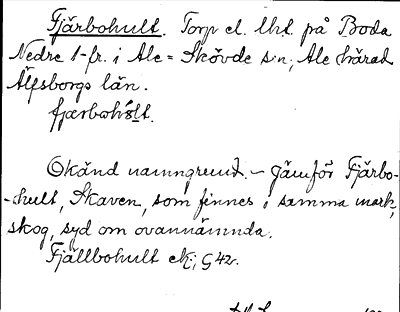 Fjärbohult. Torp el. lht. på Boda
Nedre 1-fr. i Ale = Skövde s:n, Ale härad
Älfsborgs län.
fjærbohúlt.
Okänd namngrund. – Jämför Fjärbo-
-hult, Skaven, som finnes i samma mark,
skog, syd om ovannämnda.
Fjällbohult ek; G 42.